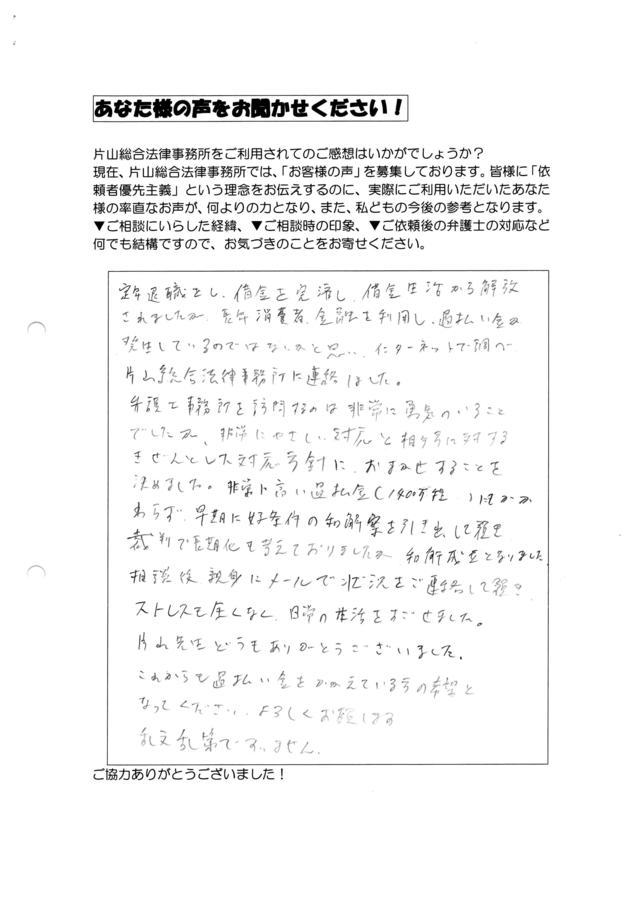 あなた様の声をお聞かせください！
片山総合法律事務所をご利用されてのご感想はいかがでしょうか？
現在、片山総合法律事務所では、「お客様の声」を募集しております。皆様に「依
頼者優先主義」という理念をお伝えするのに、実際にご利用いただいたあなた
様の率直なお声が、何よりの力となり、また、私どもの今後の参考となります。
▼ご相談にいらした経緯、▼ご相談時の印象、▼ご依頼後の弁護士の対応など
何でも結構ですので、お気づきのことをお寄せください。
定年退職をし、借金を完済し、借金生活から解放
されましたが、長年消費者金融を利用し、過払い金が
発生しているのではないかと思い、インターネットで調べ
片山総合法律事務所に連絡しました。
弁護士事務所を訪問するのは非常に勇気のいること
でしたが、非常にやさしい対応と相手に対する
きぜんとした対応方針に、おまかせすることを
決めました。非常に高い過払金(1400万程)にもかか
わらず、早期に好条件の和解案を引き出して頂き
裁判で長期化も考えておりましたが、和解成立となりました
相談後親身にメールで状況をご連絡して頂き
ストレスも全くなく、日常の生活をすごせました。
片山先生どうもありがとうございました。
これからも過払い金をかかえている方の希望と
なってください。よろしくお願いします
乱文乱筆ですいません。
ご協力ありがとうございました！